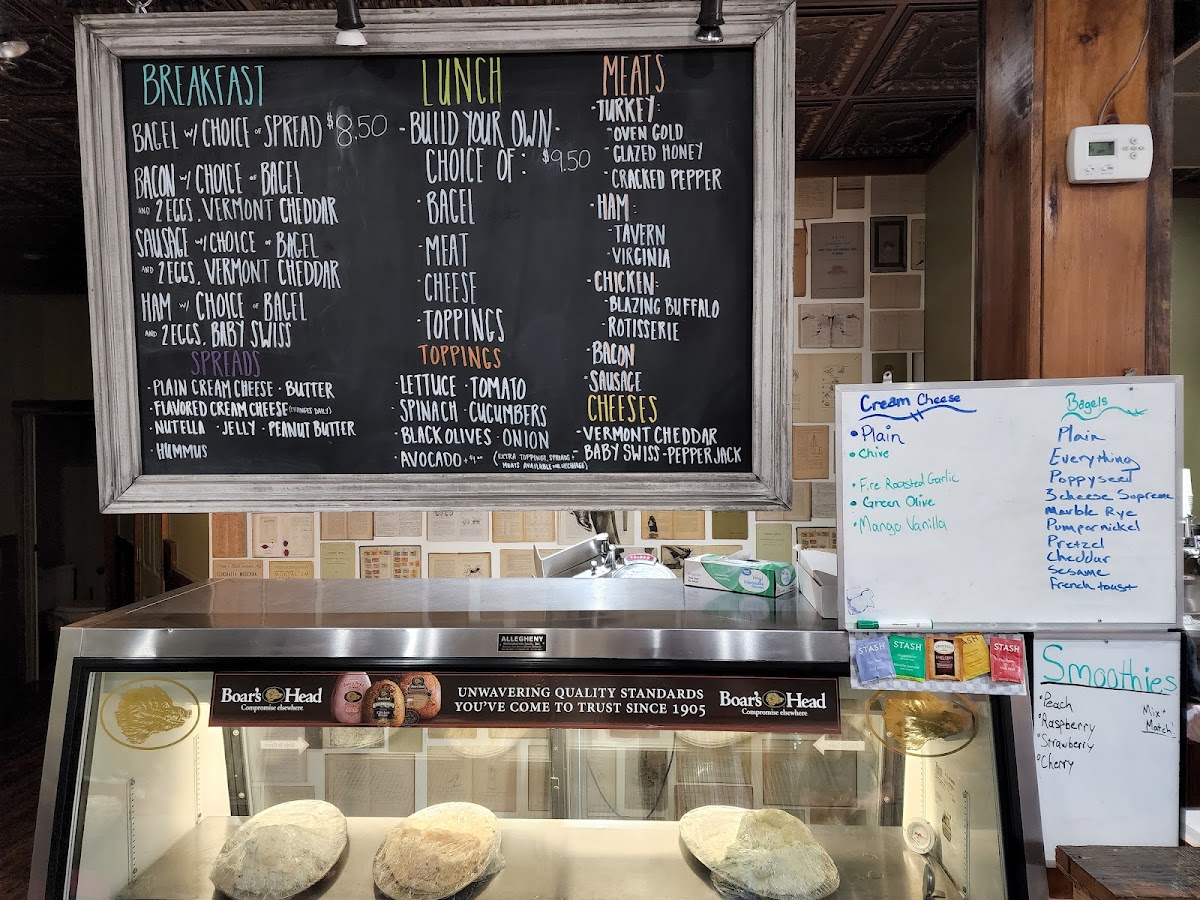 BREAKFAST
BAGEL W/ CHOICE OF SPREAD $8.50
BACON W/ CHOICE OF BAGEL
AND 2 EGGS, VERMONT CHEDDAR
SAUSAGE W/ CHOICE OF BAGEL
AND 2 EGGS, VERMONT CHEDDAR
HAM W/ CHOICE OF BAGEL
AND 2 EGGS, BABY SWISS
SPREADS
· PLAIN CREAM CHEESE · BUTTER
· FLAVORED CREAM CHEESE (CHANGES DAILY)
· NUTELLA · JELLY · PEANUT BUTTER
· HUMMUS
LUNCH
- BUILD YOUR OWN -
CHOICE OF: $9.50
· BAGEL
· MEAT
· CHEESE
· TOPPINGS
TOPPINGS
· LETTUCE · TOMATO
· SPINACH · CUCUMBERS
· BLACK OLIVES · ONION
· AVOCADO
(EXTRA TOPPINGS, SPREADS +
MEATS AVAILABLE FOR UPCHARGE)
MEATS
- TURKEY:
· OVEN GOLD
· GLAZED HONEY
· CRACKED PEPPER
- HAM:
· TAVERN
· VIRGINIA
- CHICKEN:
· BLAZING BUFFALO
· ROTISSERIE
- BACON
- SAUSAGE
CHEESES
- VERMONT CHEDDAR
- BABY SWISS - PEPPER JACK
Cream Cheese
• Plain
• Chive
• Fire Roasted Garlic
• Green Olive
• Mango Vanilla
Bagels
Plain
Everything
Poppyseed
3 cheese Supreme
Marble Rye
Pumpernickel
Pretzel
Cheddar
Sesame
French toast
ALLEGHENY
STASH
STASH
STASH
STASH
Boar's Head
Compromise elsewhere.
UNWAVERING QUALITY STANDARDS
YOU'VE COME TO TRUST SINCE 1905
Boar's Head
Compromise elsewhere.
Smoothies
• Peach
• Raspberry
• Strawberry
• Cherry
Mix +
Match!